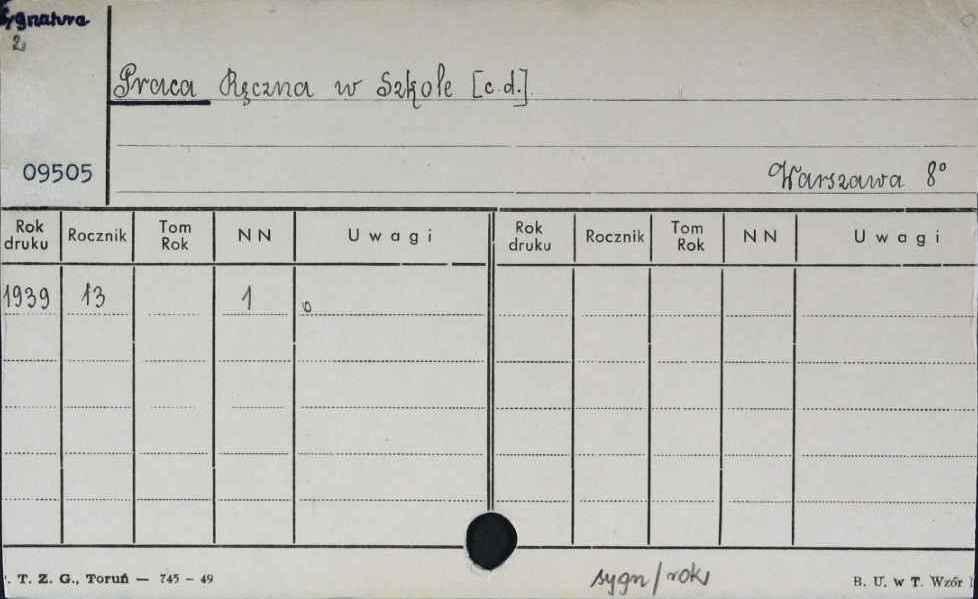 Sygnatura
2,
Praca Ręczna w Szkole [c.d.]
09505
Warszawa 8°
Rok druku Rocznik Tom Rok NN Uwagi Rok druku Rocznik Tom Rok NN Uwagi
1939 13 1 o
. T. Z. G., Toruń — 745 – 49
sygn/roki
B. U. w T. Wzór